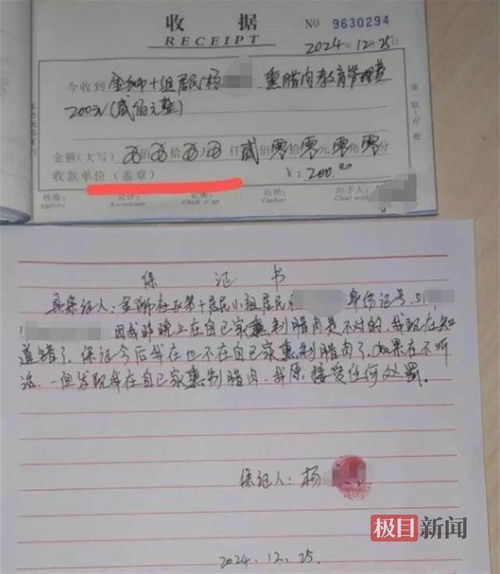 收据
RECEIPT
NO 9630294
2024年12月25日
今收到 金狮十组居民杨 熏腊肉教育管理费
200元(贰佰元整)
金额(大写) 佰 拾 万 仟 贰 零 零 元 零 零 分
收款单位(盖章) ¥:200.
第一联:存根
保证书
具保证人:金狮社区第十居民小组居民 身份证号:
因我昨晚上在自己家熏制腊肉是不对的,我现在知
道错了,保证今后我在也不在自己家熏制腊肉了,如果在不听
话,一但发现我在自己家熏制腊肉,我原接受任何处罚。
保证人:杨
2024.12.25.
极目新闻